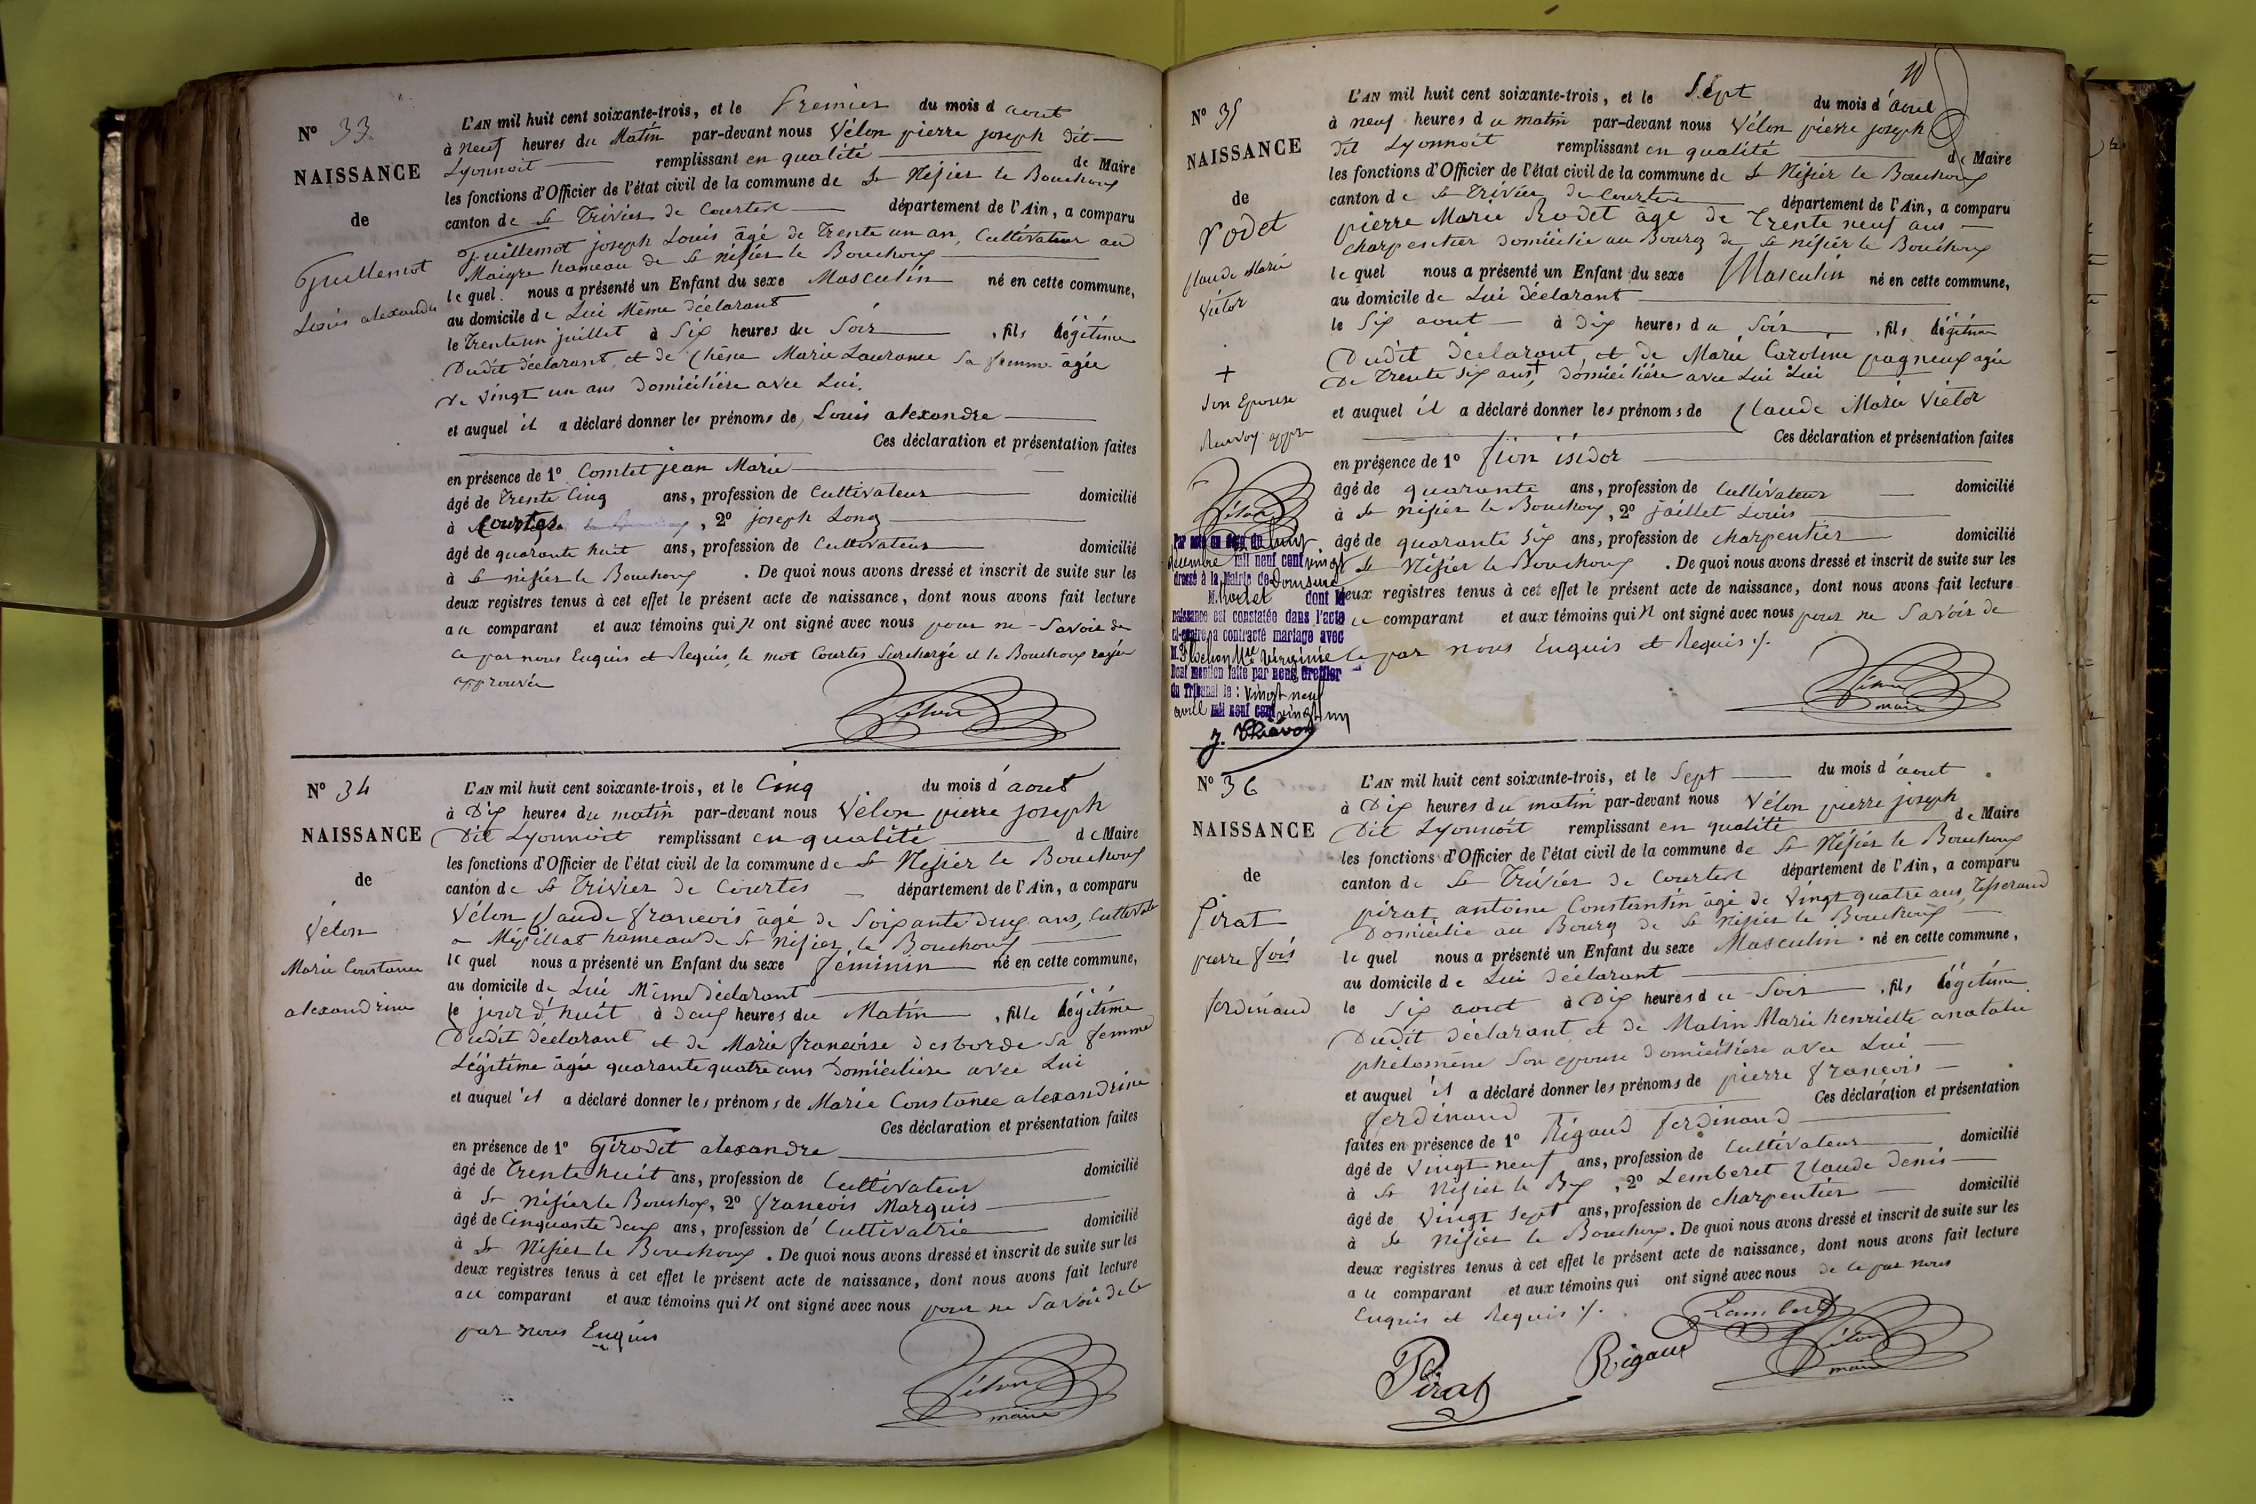 N° 33
NAISSANCE
de
Guillemot
Louis alexandre
L'AN mil huit cent soixante-trois, et le Premier du mois d aout
à neuf heures du Matin par-devant nous Vélon pierre joseph dit
Lyonnoit remplissant en qualité de Maire
les fonctions d'Officier de l'état civil de la commune de St Nisier le Bouchoux
canton de St Trivier de Courtes département de l'Ain, a comparu
Guillemot joseph Louis âgé de Trente un an, Cultivateur au
Maigre hameau de St nisier le Bouchoux
lequel nous a présenté un Enfant du sexe Masculin né en cette commune,
au domicile de Lui Même déclarant
le Trente un juillet à Six heures du Soir, fils légitime
Dudit déclarant et de Chêne Marie Laurance sa femme âgée
de vingt un ans domicilière avec Lui.
et auquel il a déclaré donner les prénoms de Louis alexandre
Ces déclaration et présentation faites
en présence de 1° Comtet jean Marie
âgé de Trente Cinq ans, profession de Cultivateur domicilié
à Courtes, 2° joseph Long
âgé de quarante huit ans, profession de Cultivateur domicilié
à St nisier le Bouchoux. De quoi nous avons dressé et inscrit de suite sur les
deux registres tenus à cet effet le présent acte de naissance, dont nous avons fait lecture
au comparant et aux témoins qui N ont signé avec nous pour ne Savoir de
ce par nous Enquis et Requis, le mot Courtes Surchargé et le Bouchoux rayée
approuvée
Vélon
N° 34
NAISSANCE
de
Vélon
Marie Constance
alexandrine
L'AN mil huit cent soixante-trois, et le Cinq du mois d'aout
à Dix heures du matin par-devant nous Vélon pierre joseph
Dit Lyonnoit remplissant en qualité de Maire
les fonctions d'Officier de l'état civil de la commune de St Nisier le Bouchoux
canton de St Trivier de Courtes département de l'Ain, a comparu
Vélon Claude francois âgé de Soixante deux ans, Cultivate
a Mépillat hameau de St nisier le Bouchoux
lequel nous a présenté un Enfant du sexe féminin né en cette commune,
au domicile de Lui Même déclarant
le jour d'huit à deux heures du Matin, fille légitime
Dudit déclarant et de Marie francoise desborde sa femme
Légitime âgée quarante quatre ans domicilière avec Lui
et auquel il a déclaré donner les prénoms de Marie Constance alexandrine
Ces déclaration et présentation faites
en présence de 1° Girodet alexandre
âgé de Trente huit ans, profession de Cultivateur domicilié
à St Nisier le Bouchox, 2° francois Marquis
âgé de Cinquante deux ans, profession de Cultivatrie domicilié
à St Nisier le Bouchoux. De quoi nous avons dressé et inscrit de suite sur les
deux registres tenus à cet effet le présent acte de naissance, dont nous avons fait lecture
au comparant et aux témoins qui N ont signé avec nous pour ne Savoir de ce
par nous Enquis
Vélon
maire
N° 35
NAISSANCE
de
rodet
Claude Marie
Victor
+
Son Epouse
Renvoy appr
Vélon
Par acte en date du huit
décembre mil neuf cent vingt
dressé à la Mairie de Domsure
M. Rodet dont la
naissance est constatée dans l'acte
ci-contre a contracté mariage avec
M. Flochon Mie Virginie
Dont mention faite par nous, Greffier
du Tribunal le : vingt neuf
avril mil neuf cent vingt un
L'AN mil huit cent soixante-trois, et le Sept du mois d'aout
à neuf heures du matin par-devant nous Vélon pierre joseph
dit Lyonnoit remplissant en qualité de Maire
les fonctions d'Officier de l'état civil de la commune de St Nisier le Bouchoux
canton de St Trivier de Courtes département de l'Ain, a comparu
pierre Marie Rodet âgé de Trente neuf ans
charpentier domicilié au Bourg de St nisier le Bouchoux
lequel nous a présenté un Enfant du sexe Masculin né en cette commune,
au domicile de Lui déclarant
le Six aout à dix heures du Soir, fils légitime
Dudit déclarant, et de Marie Caroline pagneux agée
De Trente Six ans +, domicilière avec Lui Lui
et auquel il a déclaré donner les prénoms de Claude Marie Victor
Ces déclaration et présentation faites
en présence de 1° fion isidor
âgé de quarante ans, profession de Cultivateur domicilié
à St Nisier le Bouchoux, 2° jaillet Louis
âgé de quarante Six ans, profession de charpentier domicilié
à St Nisier le Bouchoux. De quoi nous avons dressé et inscrit de suite sur les
deux registres tenus à cet effet le présent acte de naissance, dont nous avons fait lecture
au comparant et aux témoins qui N ont signé avec nous pour ne Savoir de
ce par nous Enquis et Requis ./.
Vélon
maire
N° 36
NAISSANCE
de
pirat
pierre fois
ferdinand
L'AN mil huit cent soixante-trois, et le Sept du mois d'aout
à Dix heures du matin par-devant nous Vélon pierre joseph
Dit Lyonnoit remplissant en qualité de Maire
les fonctions d'Officier de l'état civil de la commune de St Nisier le Bouchoux
canton de St Trivier de Courtes département de l'Ain, a comparu
pirat antoine Constantin âgé de Vingt quatre ans, Tisserand
Domicilié au Bourg de St Nisier le Bouchoux
lequel nous a présenté un Enfant du sexe Masculin né en cette commune,
au domicile de Lui déclarant
le Six aout à Dix heures du Soir, fils légitime
Dudit déclarant et de Matin Marie henriette anatalie
phélomène Son epouse domicilière avec Lui
et auquel il a déclaré donner les prénoms de pierre francois
ferdinand Ces déclaration et présentation
faites en présence de 1° Rigaud ferdinand
âgé de Vingt neuf ans, profession de Cultivateur domicilié
à St Nisier le Bx, 2° Lemberet Claude denis
âgé de vingt Sept ans, profession de charpentier domicilié
à St Nisier le Bouchoux. De quoi nous avons dressé et inscrit de suite sur les
deux registres tenus à cet effet le présent acte de naissance, dont nous avons fait lecture
au comparant et aux témoins qui ont signé avec nous de ce par nous
Enquis et Requis ./.
Lambert
Pirat
Rigaud
Vélon
maire